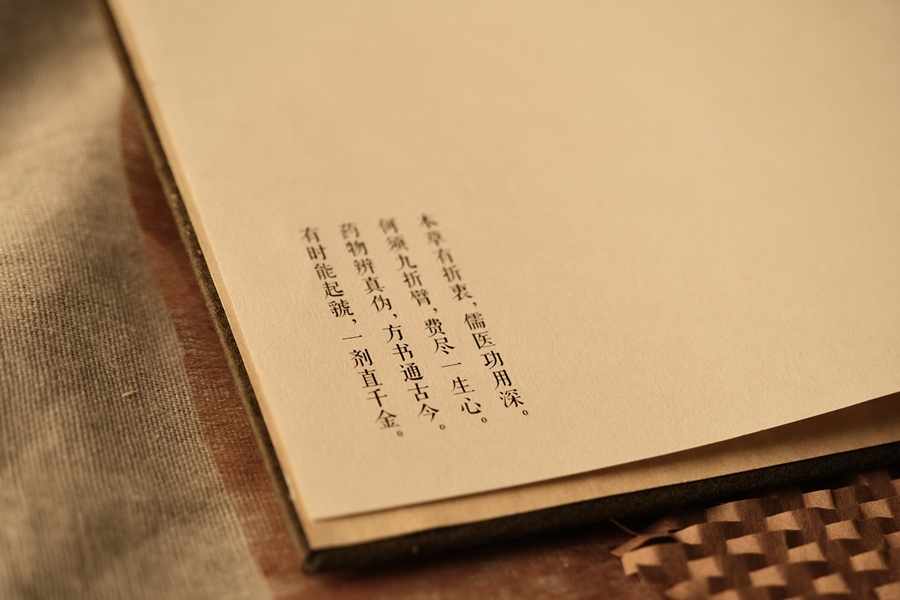 本草有折衷，儒医功用深。
何须九折臂，费尽一生心。
药物辨真伪，方书通古今。
有时能起虢，一剂直千金。